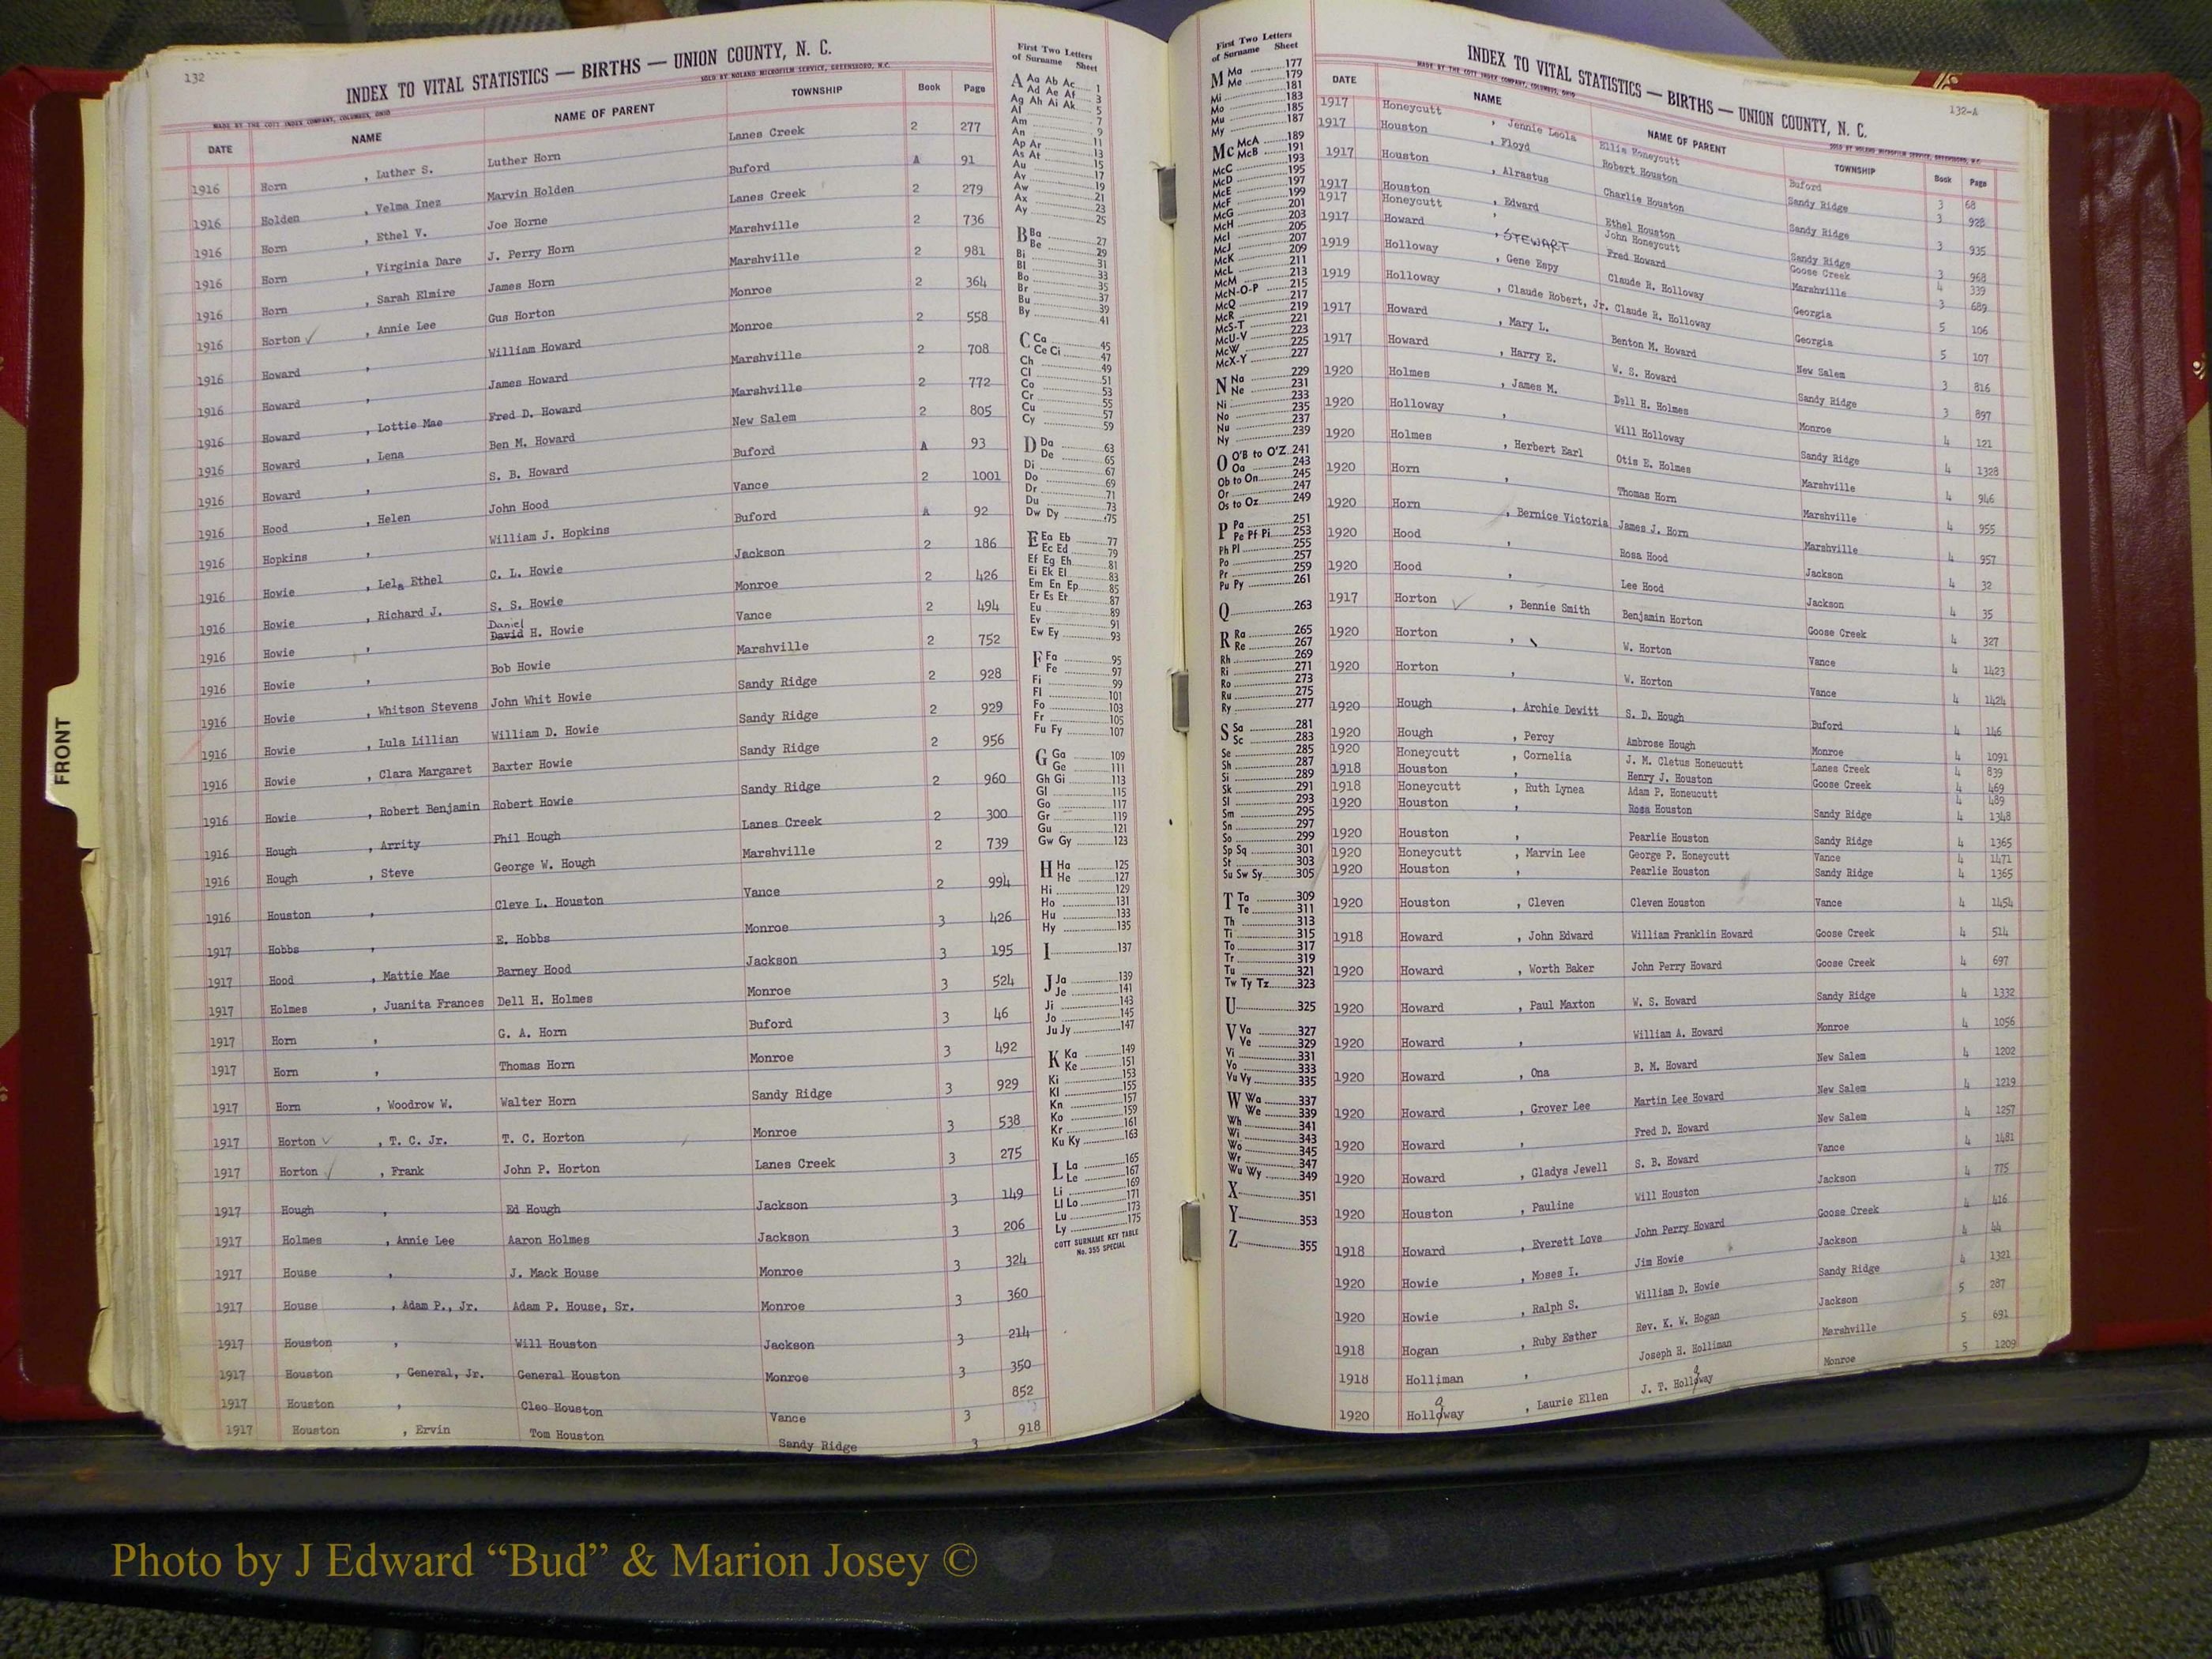 132
INDEX TO VITAL STATISTICS — BIRTHS — UNION COUNTY, N. C.
MADE BY THE COTT INDEX COMPANY, COLUMBUS, OHIO SOLD BY NOLAND MICROFILM SERVICE, GREENSBORO, N.C.
DATE NAME NAME OF PARENT TOWNSHIP Book Page
1916 Horn , Luther S. Luther Horn Lanes Creek 2 277
1916 Holden , Velma Inez Marvin Holden Buford A 91
1916 Horn , Ethel V. Joe Horne Lanes Creek 2 279
1916 Horn , Virginia Dare J. Perry Horn Marshville 2 736
1916 Horn , Sarah Elmire James Horn Marshville 2 981
1916 Horton ✓ , Annie Lee Gus Horton Monroe 2 364
1916 Howard , William Howard Monroe 2 558
1916 Howard , James Howard Marshville 2 708
1916 Howard , Lottie Mae Fred D. Howard Marshville 2 772
1916 Howard , Lena Ben M. Howard New Salem 2 805
1916 Howard , S. B. Howard Buford A 93
1916 Hood , Helen John Hood Vance 2 1001
1916 Hopkins , William J. Hopkins Buford A 92
1916 Howie , Lela Ethel C. L. Howie Jackson 2 186
1916 Howie , Richard J. S. S. Howie Monroe 2 426
1916 Howie , Daniel David H. Howie Vance 2 494
1916 Howie , Bob Howie Marshville 2 752
1916 Howie , Whitson Stevens John Whit Howie Sandy Ridge 2 928
1916 Howie , Lula Lillian William D. Howie Sandy Ridge 2 929
1916 Howie , Clara Margaret Baxter Howie Sandy Ridge 2 956
1916 Howie , Robert Benjamin Robert Howie Sandy Ridge 2 960
1916 Hough , Arrity Phil Hough Lanes Creek 2 300
1916 Hough , Steve George W. Hough Marshville 2 739
1916 Houston , Cleve L. Houston Vance 2 994
1917 Hobbs , E. Hobbs Monroe 3 426
1917 Hood , Mattie Mae Barney Hood Jackson 3 195
1917 Holmes , Juanita Frances Dell H. Holmes Monroe 3 524
1917 Horn , G. A. Horn Buford 3 46
1917 Horn , Thomas Horn Monroe 3 492
1917 Horn , Woodrow W. Walter Horn Sandy Ridge 3 929
1917 Horton ✓ , T. C. Jr. T. C. Horton Monroe 3 538
1917 Horton ✓ , Frank John P. Horton Lanes Creek 3 275
1917 Hough , Ed Hough Jackson 3 149
1917 Holmes , Annie Lee Aaron Holmes Jackson 3 206
1917 House , J. Mack House Monroe 3 324
1917 House , Adam P., Jr. Adam P. House, Sr. Monroe 3 360
1917 Houston , Will Houston Jackson 3 214
1917 Houston , General, Jr. General Houston Monroe 3 350
1917 Houston , Cleo Houston Vance 3 852
1917 Houston , Ervin Tom Houston Sandy Ridge 3 918
First Two Letters of Surname Sheet
A Aa Ab Ac 1
Ad Ae Af 3
Ag Ah Ai Ak 5
Al 7
Am 9
An 11
Ap Ar 13
As At 15
Au 17
Av 19
Aw 21
Ax 23
Ay 25
B Ba 27
Be 29
Bi 31
Bl 33
Bo 35
Br 37
Bu 39
By 41
C Ca 45
Ce Ci 47
Ch 49
Cl 51
Co 53
Cr 55
Cu 57
Cy 59
D Da 63
De 65
Di 67
Do 69
Dr 71
Du 73
Dw Dy 75
E Ea Eb 77
Ec Ed 79
Ef Eg Eh 81
Ei Ek El 83
Em En Ep 85
Er Es Et 87
Eu 89
Ev 91
Ew Ey 93
F Fa 95
Fe 97
Fi 99
Fl 101
Fo 103
Fr 105
Fu Fy 107
G Ga 109
Ge 111
Gh Gi 113
Gl 115
Go 117
Gr 119
Gu 121
Gw Gy 123
H Ha 125
He 127
Hi 129
Ho 131
Hu 133
Hy 135
I 137
J Ja 139
Je 141
Ji 143
Jo 145
Ju Jy 147
K Ka 149
Ke 151
Ki 153
Kl 155
Kn 157
Ko 159
Kr 161
Ku Ky 163
L La 165
Le 167
Li 169
Ll Lo 171
Lu 173
Ly 175
COTT SURNAME KEY TABLE
No. 355 SPECIAL
First Two Letters of Surname Sheet
M Ma 177
Me 179
Mi 181
Mo 183
Mu 185
My 187
Mc McA 189
McB 191
McC 193
McD 195
McE 197
McF 199
McG 201
McH 203
McI 205
McJ 207
McK 209
McL 211
McM 213
McN-O-P 215
McQ 217
McR 219
McS-T 221
McU-V 223
McW 225
McX-Y 227
N Na 229
Ne 231
Ni 233
No 235
Nu 237
Ny 239
O O'B to O'Z 241
Oa 243
Ob to On 245
Or 247
Os to Oz 249
P Pa 251
Pe Pf Pi 253
Ph Pl 255
Po 257
Pr 259
Pu Py 261
Q 263
R Ra 265
Re 267
Rh 269
Ri 271
Ro 273
Ru 275
Ry 277
S Sa 281
Sc 283
Se 285
Sh 287
Si 289
Sk 291
Sl 293
Sm 295
Sn 297
So 299
Sp Sq 301
St 303
Su Sw Sy 305
T Ta 309
Te 311
Th 313
Ti 315
To 317
Tr 319
Tu 321
Tw Ty Tz 323
U 325
V Va 327
Ve 329
Vi 331
Vo 333
Vu Vy 335
W Wa 337
We 339
Wh 341
Wi 343
Wo 345
Wr 347
Wu Wy 349
X 351
Y 353
Z 355
132-A
INDEX TO VITAL STATISTICS — BIRTHS — UNION COUNTY, N. C.
MADE BY THE COTT INDEX COMPANY, COLUMBUS, OHIO SOLD BY NOLAND MICROFILM SERVICE, GREENSBORO, N.C.
DATE NAME NAME OF PARENT TOWNSHIP Book Page
1917 Honeycutt , Jennie Leola Ellis Honeycutt Buford 3 68
1917 Houston , Floyd Robert Houston Sandy Ridge 3 928
1917 Houston , Alrastus Charlie Houston Sandy Ridge 3 935
1917 Houston , Edward Ethel Houston Sandy Ridge 3 968
1917 Honeycutt , John Honeycutt Goose Creek 4 339
1917 Howard , STEWART Fred Howard Marshville 3 689
1919 Holloway , Gene Espy Claude R. Holloway Georgia 5 106
1919 Holloway , Claude Robert, Jr. Claude R. Holloway Georgia 5 107
1917 Howard , Mary L. Benton M. Howard New Salem 3 816
1917 Howard , Harry E. W. S. Howard Sandy Ridge 3 897
1920 Holmes , James M. Dell H. Holmes Monroe 4 121
1920 Holloway , Will Holloway Sandy Ridge 4 1328
1920 Holmes , Herbert Earl Otis E. Holmes Marshville 4 946
1920 Horn , Thomas Horn Marshville 4 955
1920 Horn , Bernice Victoria James J. Horn Marshville 4 957
1920 Hood , Rosa Hood Jackson 4 32
1920 Hood , Lee Hood Jackson 4 35
1917 Horton ✓ , Bennie Smith Benjamin Horton Goose Creek 4 327
1920 Horton , W. Horton Vance 4 1423
1920 Horton , W. Horton Vance 4 1424
1920 Hough , Archie Dewitt S. D. Hough Buford 4 146
1920 Hough , Percy Ambrose Hough Monroe 4 1091
1920 Honeycutt , Cornelia J. M. Cletus Honeucutt Lanes Creek 4 839
1918 Houston , Henry J. Houston Goose Creek 4 469
1918 Honeycutt , Ruth Lynea Adam P. Honeucutt 4 489
1920 Houston , Rosa Houston Sandy Ridge 4 1348
1920 Houston , Pearlie Houston Sandy Ridge 4 1365
1920 Honeycutt , Marvin Lee George P. Honeycutt Vance 4 1471
1920 Houston , Pearlie Houston Sandy Ridge 4 1365
1920 Houston , Cleven Cleven Houston Vance 4 1454
1918 Howard , John Edward William Franklin Howard Goose Creek 4 514
1920 Howard , Worth Baker John Perry Howard Goose Creek 4 697
1920 Howard , Paul Maxton W. S. Howard Sandy Ridge 4 1332
1920 Howard , William A. Howard Monroe 4 1056
1920 Howard , Ona B. M. Howard New Salem 4 1202
1920 Howard , Grover Lee Martin Lee Howard New Salem 4 1219
1920 Howard , Fred D. Howard New Salem 4 1257
1920 Howard , Gladys Jewell S. B. Howard Vance 4 1481
1920 Houston , Pauline Will Houston Jackson 4 775
1918 Howard , Everett Love John Perry Howard Goose Creek 4 416
1920 Howie , Moses I. Jim Howie Jackson 4 44
1920 Howie , Ralph S. William D. Howie Sandy Ridge 4 1321
1918 Hogan , Ruby Esther Rev. K. W. Hogan Jackson 5 287
1918 Holliman , Joseph H. Holliman Marshville 5 691
1920 Holloway , Laurie Ellen J. T. Holloway Monroe 5 1209
FRONT
Photo by J Edward “Bud” & Marion Josey ©